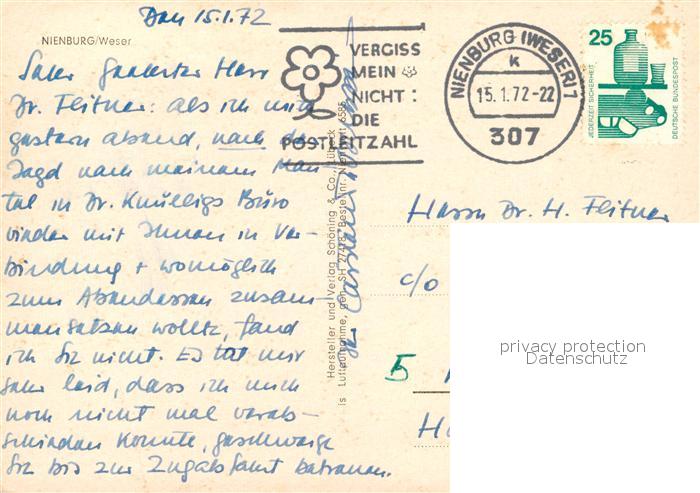 Den 15.1.72
NIENBURG/Weser
Sehr geehrter Herr
Dr. Fleitner: als ich mich
gestern abend, nach der
Jagd nach meinem Man-
tel in Dr. Knülligs Büro
wieder mit Ihnen in Ver-
bindung + womöglich
zum Abendessen zusam-
mensetzen wollte, fand
ich Sie nicht. Es tat mir
sehr leid, dass ich mich
noch nicht mal verab-
schieden konnte, geschweige
Sie bis zur Zugabfahrt betreuen.
VERGISS
MEIN
NICHT:
DIE
POSTLEITZAHL
NIENBURG (WESER) 1
k
15.1.72-22
307
25
JEDERZEIT SICHERHEIT
DEUTSCHE BUNDESPOST
Hersteller und Verlag Schöning & Co., Lübeck
Luftaufnahme, gen. SH Bestellnr. Nie
Herrn Dr. H. Fleitner
c/o
5
privacy protection
Datenschutz